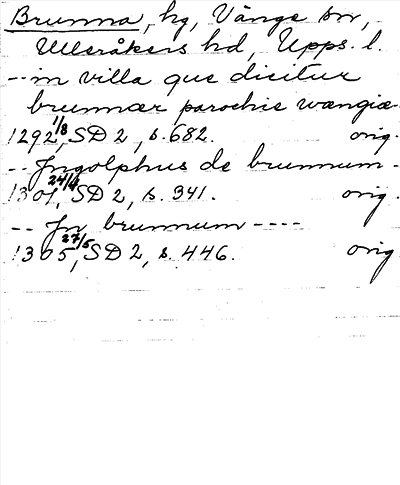 Brunna, hg, Vänge sn,
Ulleråkers hd, Upps. l.
-- in villa que dicitur
brunnær parochie wængiæ-
1292 1/8, SD 2, s. 682. orig.
-- Jngolphus de brunnum -
1301 24/4, SD 2, s. 341. orig.
-- Jn brunnum ----
1305 27/5, SD 2, s. 446. orig.